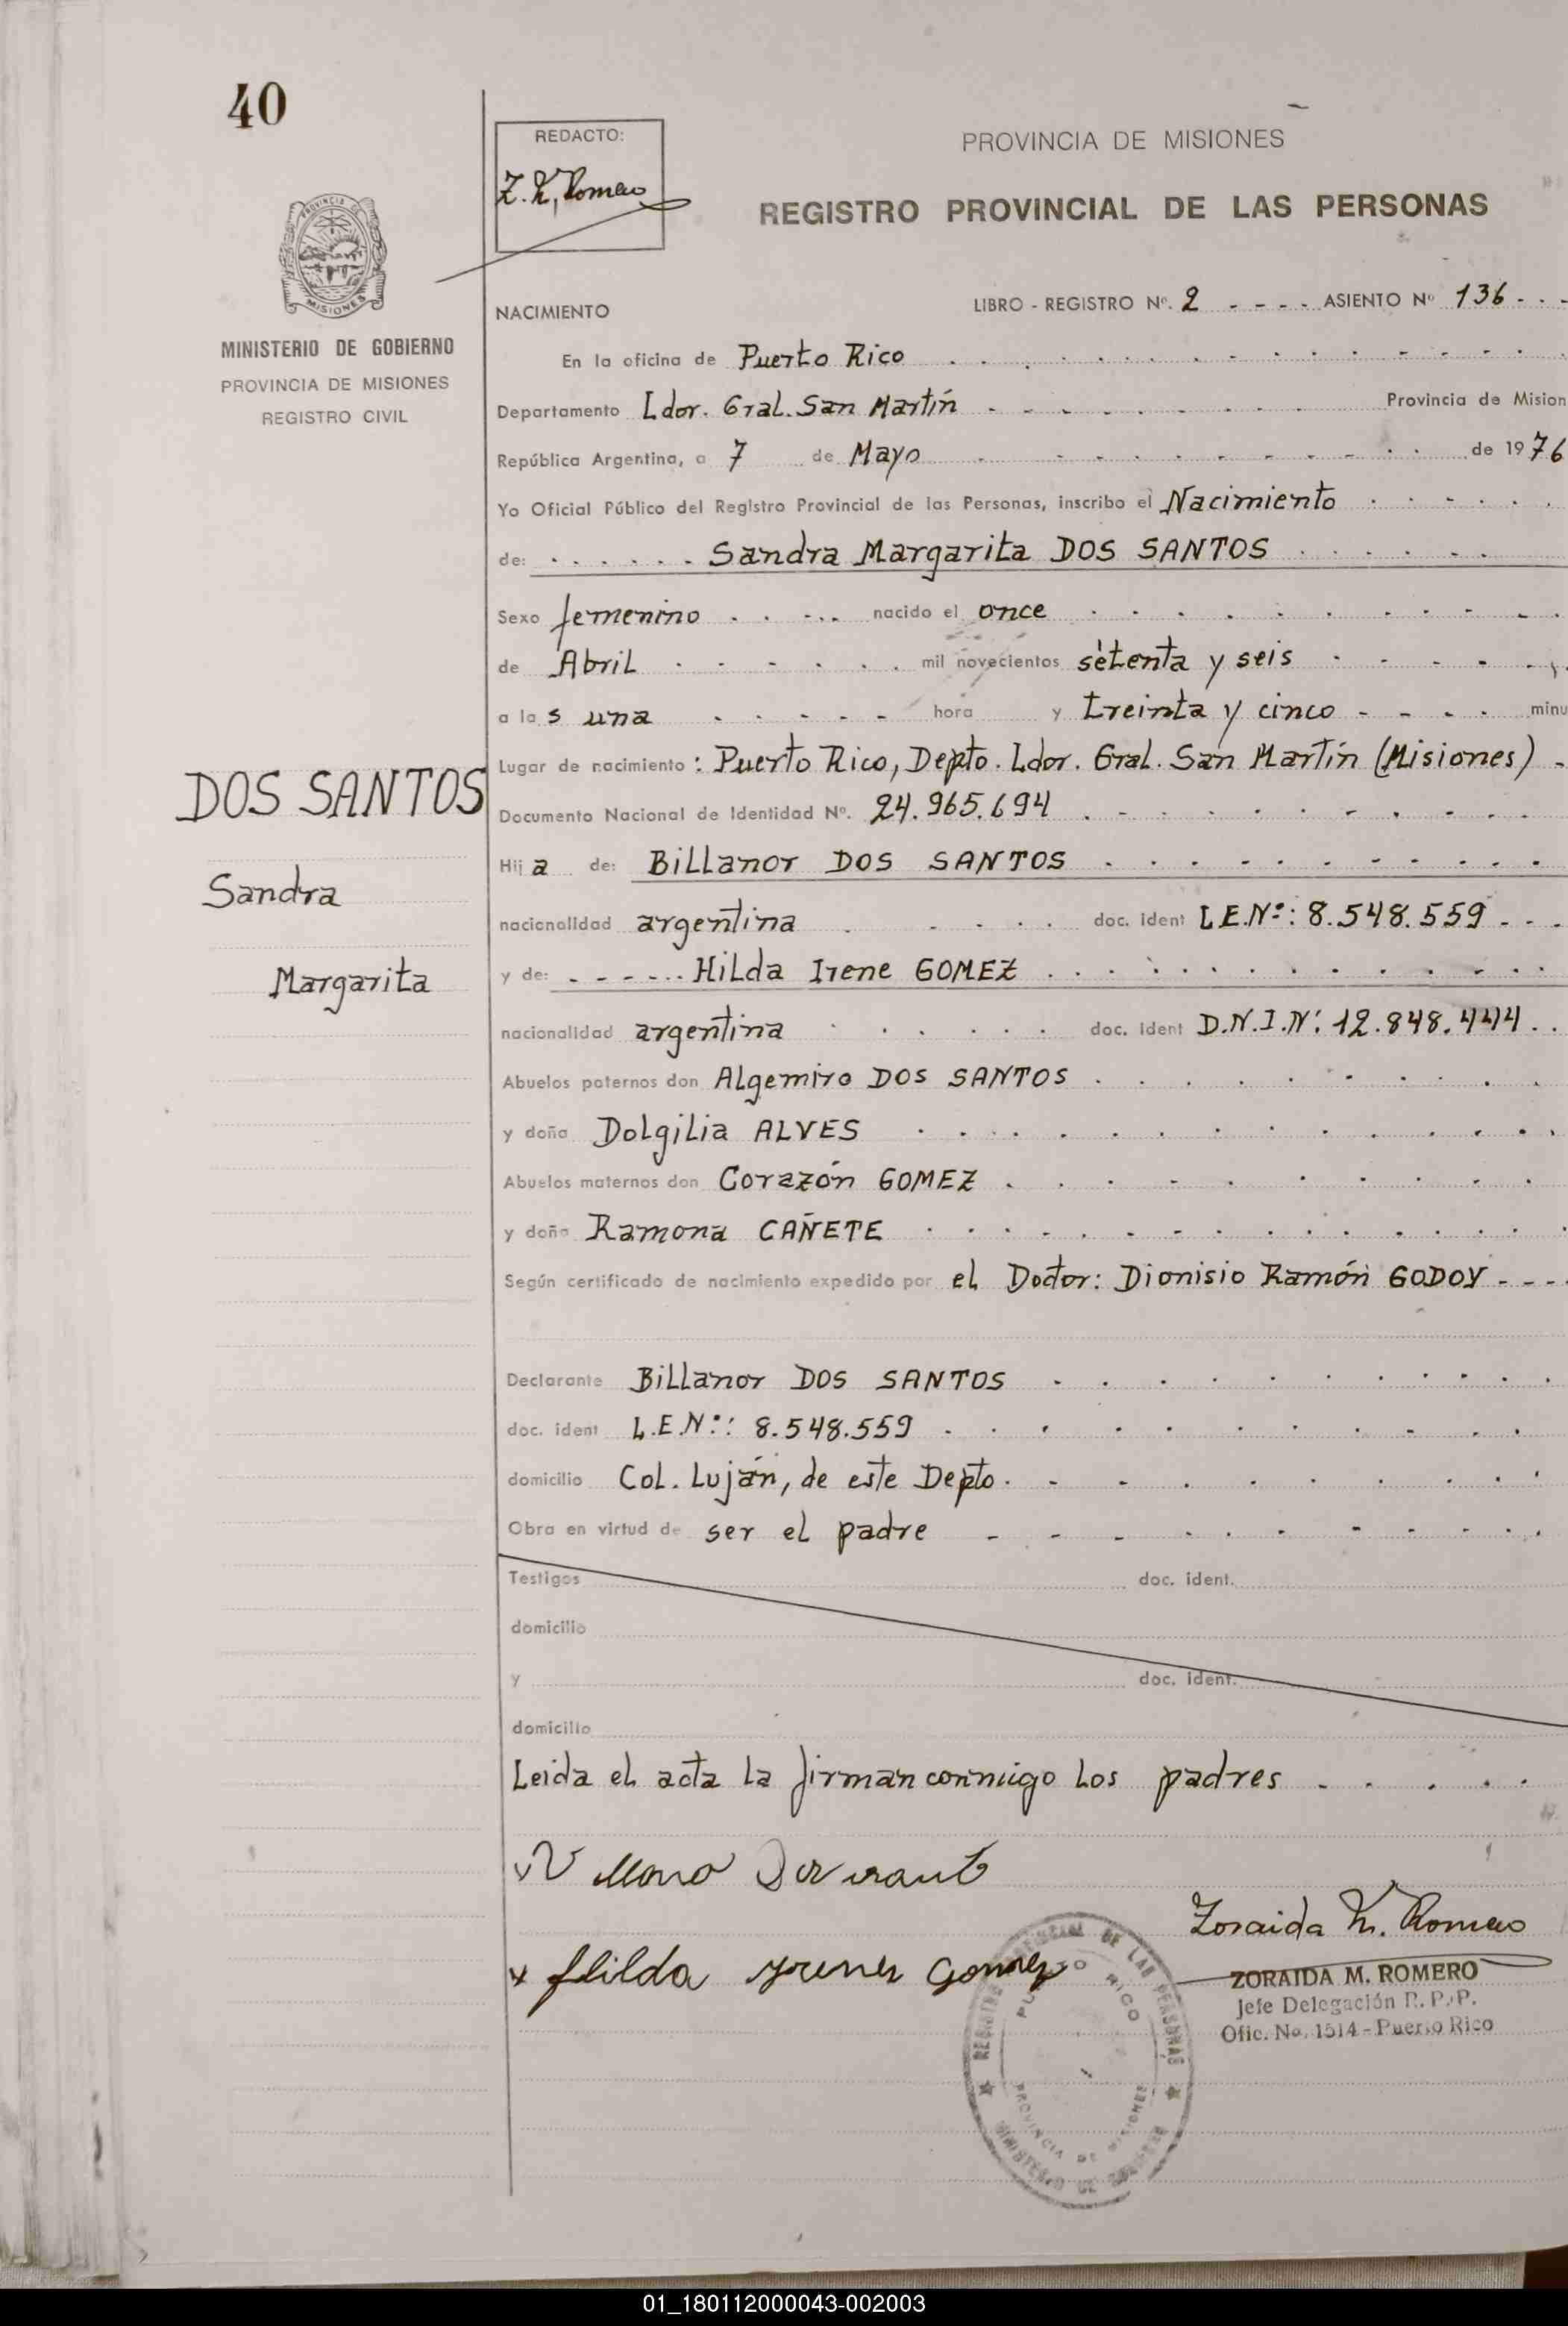 40
REDACTO:
Z. M. Romero
PROVINCIA DE MISIONES
REGISTRO PROVINCIAL DE LAS PERSONAS
PROVINCIA DE
MISIONES
MINISTERIO DE GOBIERNO
PROVINCIA DE MISIONES
REGISTRO CIVIL
NACIMIENTO LIBRO - REGISTRO Nº. 2 - - - - ASIENTO Nº 136 - - -
En la oficina de Puerto Rico
Departamento Ldor. Gral. San Martín Provincia de Mision
República Argentina, a 7 de Mayo de 1976
Yo Oficial Público del Registro Provincial de las Personas, inscribo el Nacimiento
de: Sandra Margarita DOS SANTOS
Sexo femenino nacido el once
de Abril mil novecientos setenta y seis
a las una hora y treinta y cinco minu
Lugar de nacimiento: Puerto Rico, Depto. Ldor. Gral. San Martín (Misiones) -
DOS SANTOS
Sandra
Margarita
Documento Nacional de Identidad Nº. 24.965.694
Hija de: Billanor DOS SANTOS
nacionalidad argentina doc. ident L.E.Nº: 8.548.559 - - -
y de: Hilda Irene GOMEZ
nacionalidad argentina doc. ident D.N.I.Nº: 12.848.444
Abuelos paternos don Algemiro DOS SANTOS
y doña Dolgilia ALVES
Abuelos maternos don Corazón GOMEZ
y doña Ramona CAÑETE
Según certificado de nacimiento expedido por el Doctor: Dionisio Ramón GODOY - - -
Declarante Billanor DOS SANTOS
doc. ident L.E.Nº: 8.548.559
domicilio Col. Luján, de este Depto.
Obra en virtud de ser el padre
Testigos doc. ident.
domicilio
y doc. ident.
domicilio
Leida el acta la firman conmigo los padres
x Hilda Yrenes Gomez
Zoraida M. Romero
ZORAIDA M. ROMERO
Jefe Delegación R. P. P.
Ofic. No. 1514 - Puerto Rico
REGISTRO PROVINCIAL DE LAS PERSONAS
PUERTO RICO
PROVINCIA DE MISIONES
MINISTERIO DE GOBIERNO
01_180112000043-002003